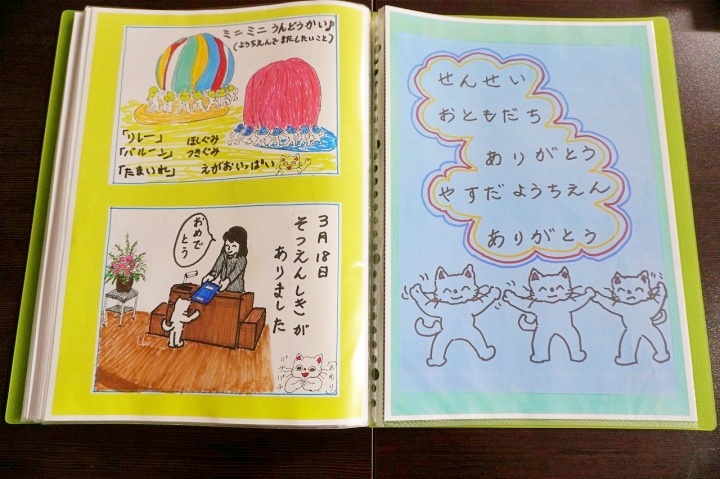 ミニミニうんどうかい♪
(ようちえんでまたしたいこと)
「リレー」 ほしぐみ
「バルーン」 つきぐみ
「たまいれ」 えがおいっぱい
3月18日
そつえんしきが
ありました
おめで
とう
パチパチ
おわり
せんせい
おともだち
ありがとう
やすだようちえん
ありがとう